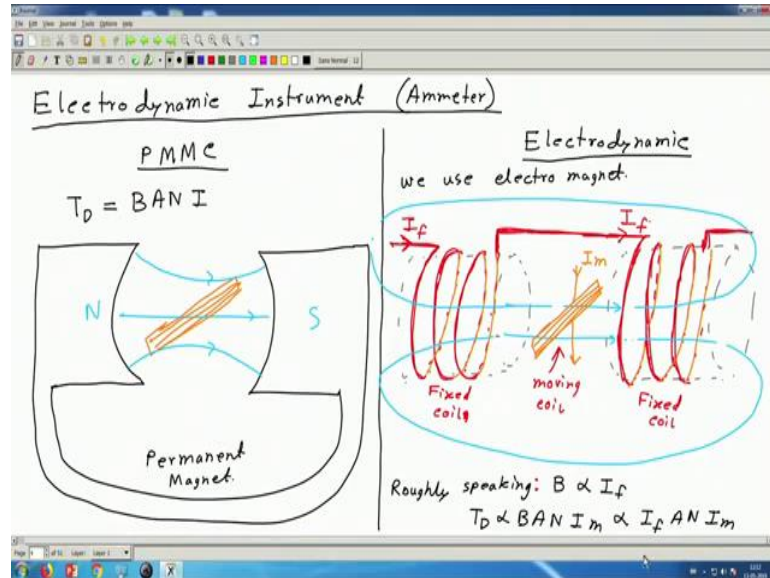 File Edit View Journal Tools Options Help
Sans Normal 12
Electrodynamic Instrument (Ammeter)
PMMC
T_D = BAN I
N
S
Permanent
Magnet.
Electrodynamic
we use electro magnet.
I_f
I_f
I_m
Fixed
coil
moving
coil
Fixed
coil
Roughly speaking: B ∝ I_f
T_D ∝ BAN I_m ∝ I_f AN I_m
Page
Layer:
Layer 1